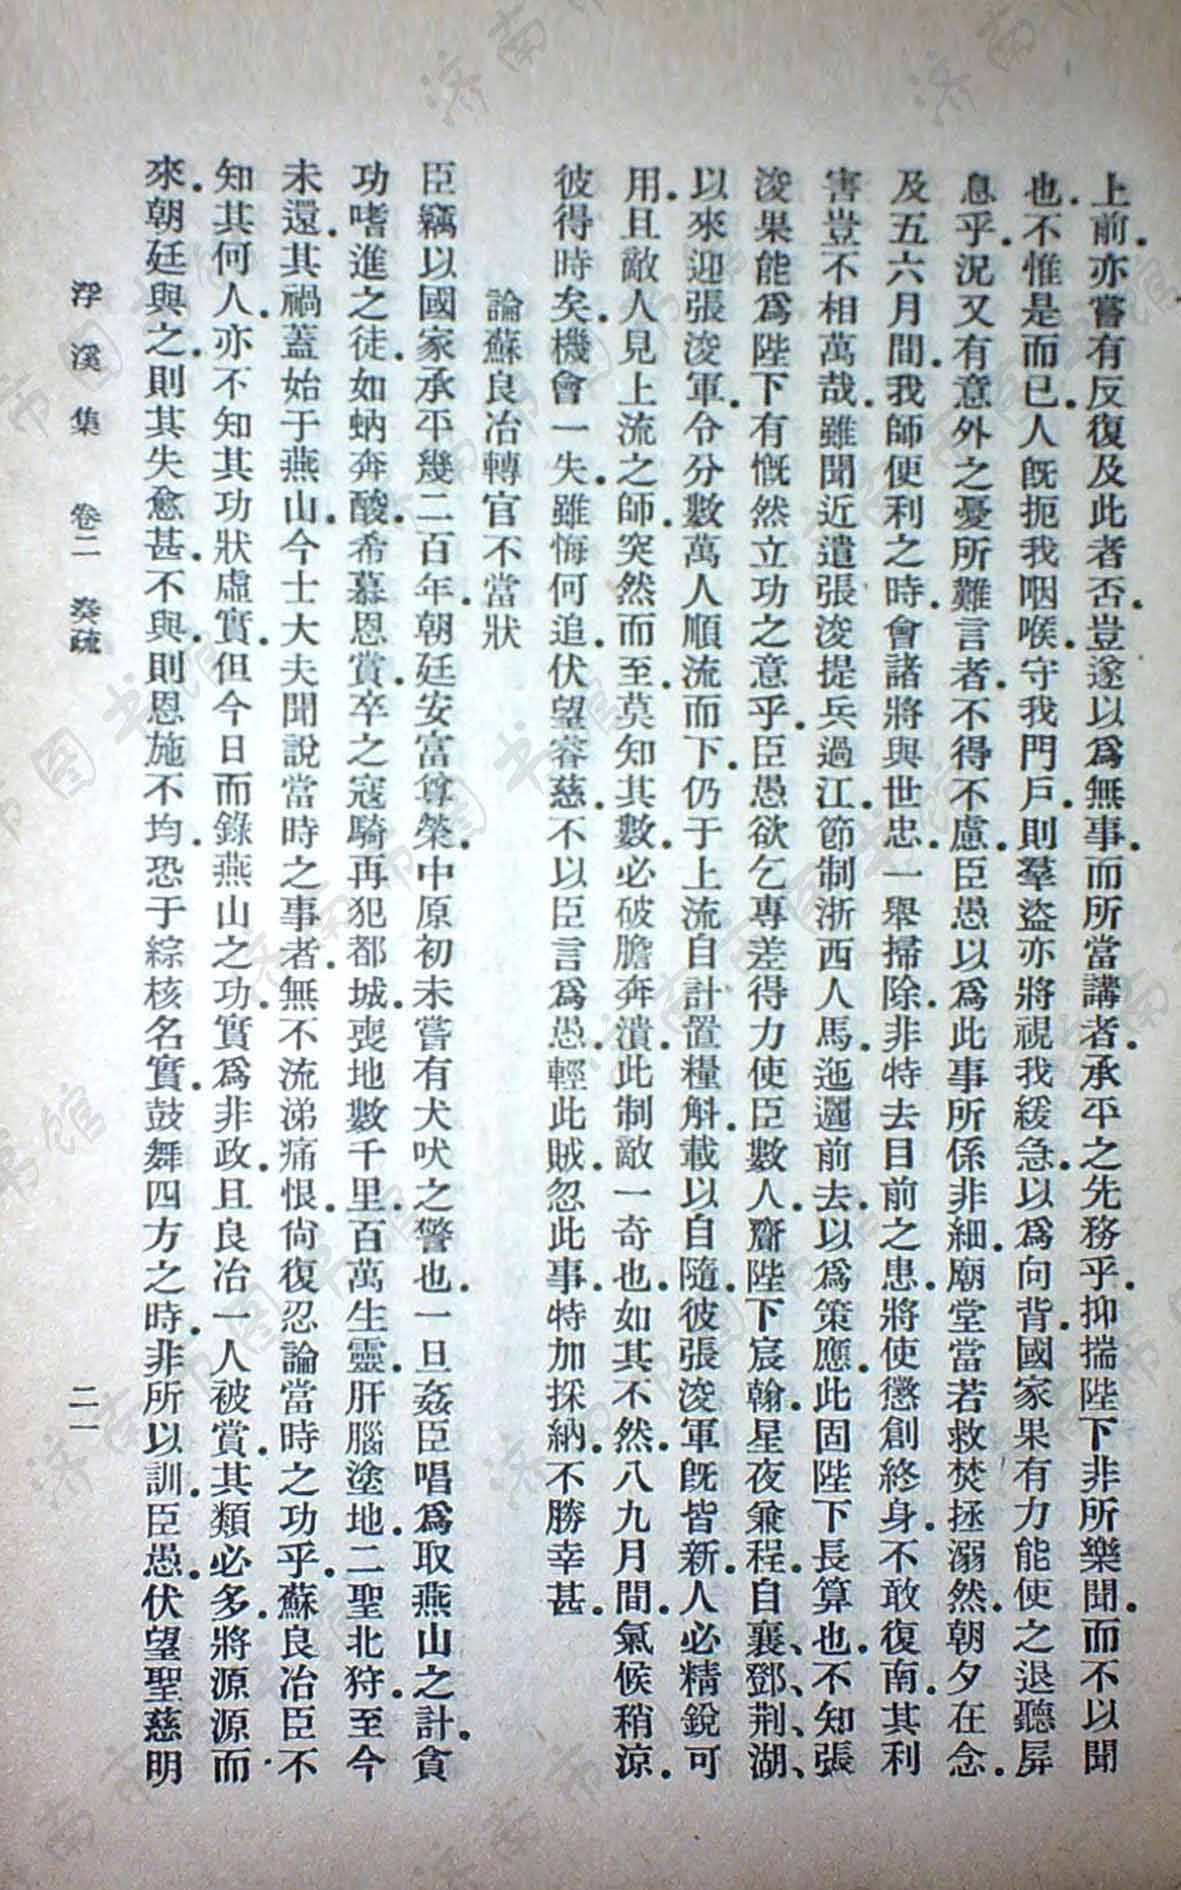 上前.亦嘗有反復及此者否.豈遂以爲無事.而所當講者.承平之先務乎.抑揣陛下非所樂聞.而不以聞
也.不惟是而已.人旣扼我咽喉.守我門戶.則羣盜亦將視我緩急.以爲向背.國家果有力能使之退聽屏
息乎.況又有意外之憂所難言者.不得不慮.臣愚以爲此事所係非細.廟堂當若救焚拯溺然.朝夕在念.
及五六月間.我師便利之時.會諸將與世忠.一舉掃除.非特去目前之患.將使懲創終身.不敢復南.其利
害豈不相萬哉.雖聞近遣張浚提兵過江.節制浙西人馬.迤邐前去.以爲策應.此固陛下長算也.不知張
浚果能爲陛下有慨然立功之意乎.臣愚欲乞專差得力使臣數人.齎陛下宸翰.星夜兼程.自襄、鄧、荆、湖、
以來迎張浚軍.令分數萬人順流而下.仍于上流自計置糧斛.載以自隨.彼張浚軍旣皆新.人必精銳可
用.且敵人見上流之師.突然而至.莫知其數.必破膽奔潰.此制敵一奇也.如其不然.八九月間.氣候稍涼.
彼得時矣.機會一失.雖悔何追.伏望睿慈.不以臣言爲愚.輕此賊.忽此事.特加採納.不勝幸甚.
論蘇良冶轉官不當狀
臣竊以國家承平幾二百年.朝廷安富尊榮.中原初未嘗有犬吠之警也.一旦姦臣唱爲取燕山之計.貪
功嗜進之徒.如蚋奔酸.希慕恩賞.卒之寇騎再犯都城.喪地數千里.百萬生靈.肝腦塗地.二聖北狩.至今
未還.其禍蓋始于燕山.今士大夫聞說當時之事者.無不流涕痛恨.尙復忍論當時之功乎.蘇良冶臣不
知其何人.亦不知其功狀虛實.但今日而錄燕山之功.實爲非政.且良冶一人被賞.其類必多.將源源而
來.朝廷與之.則其失愈甚.不與.則恩施不均.恐于綜核名實.鼓舞四方之時.非所以訓.臣愚.伏望聖慈明
浮溪集 卷二 奏疏 二一
济南市图书馆